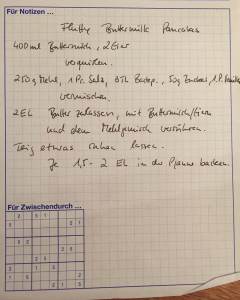 Für Notizen ...
Fluffy Buttermilk Pancakes
400ml Buttermilch, 2 Eier
verquirlen.
250g Mehl, 1 Pr. Salz, 3 TL Backp., 50g Zucker, 1 P. Vanille
vermischen.
2 EL Butter zulassen, mit Buttermilch/Eiern
und dem Mehlgemisch verrühren.
Teig etwas ruhen lassen.
Je 1,5 - 2 EL in der Pfanne backen.
Für Zwischendurch ...